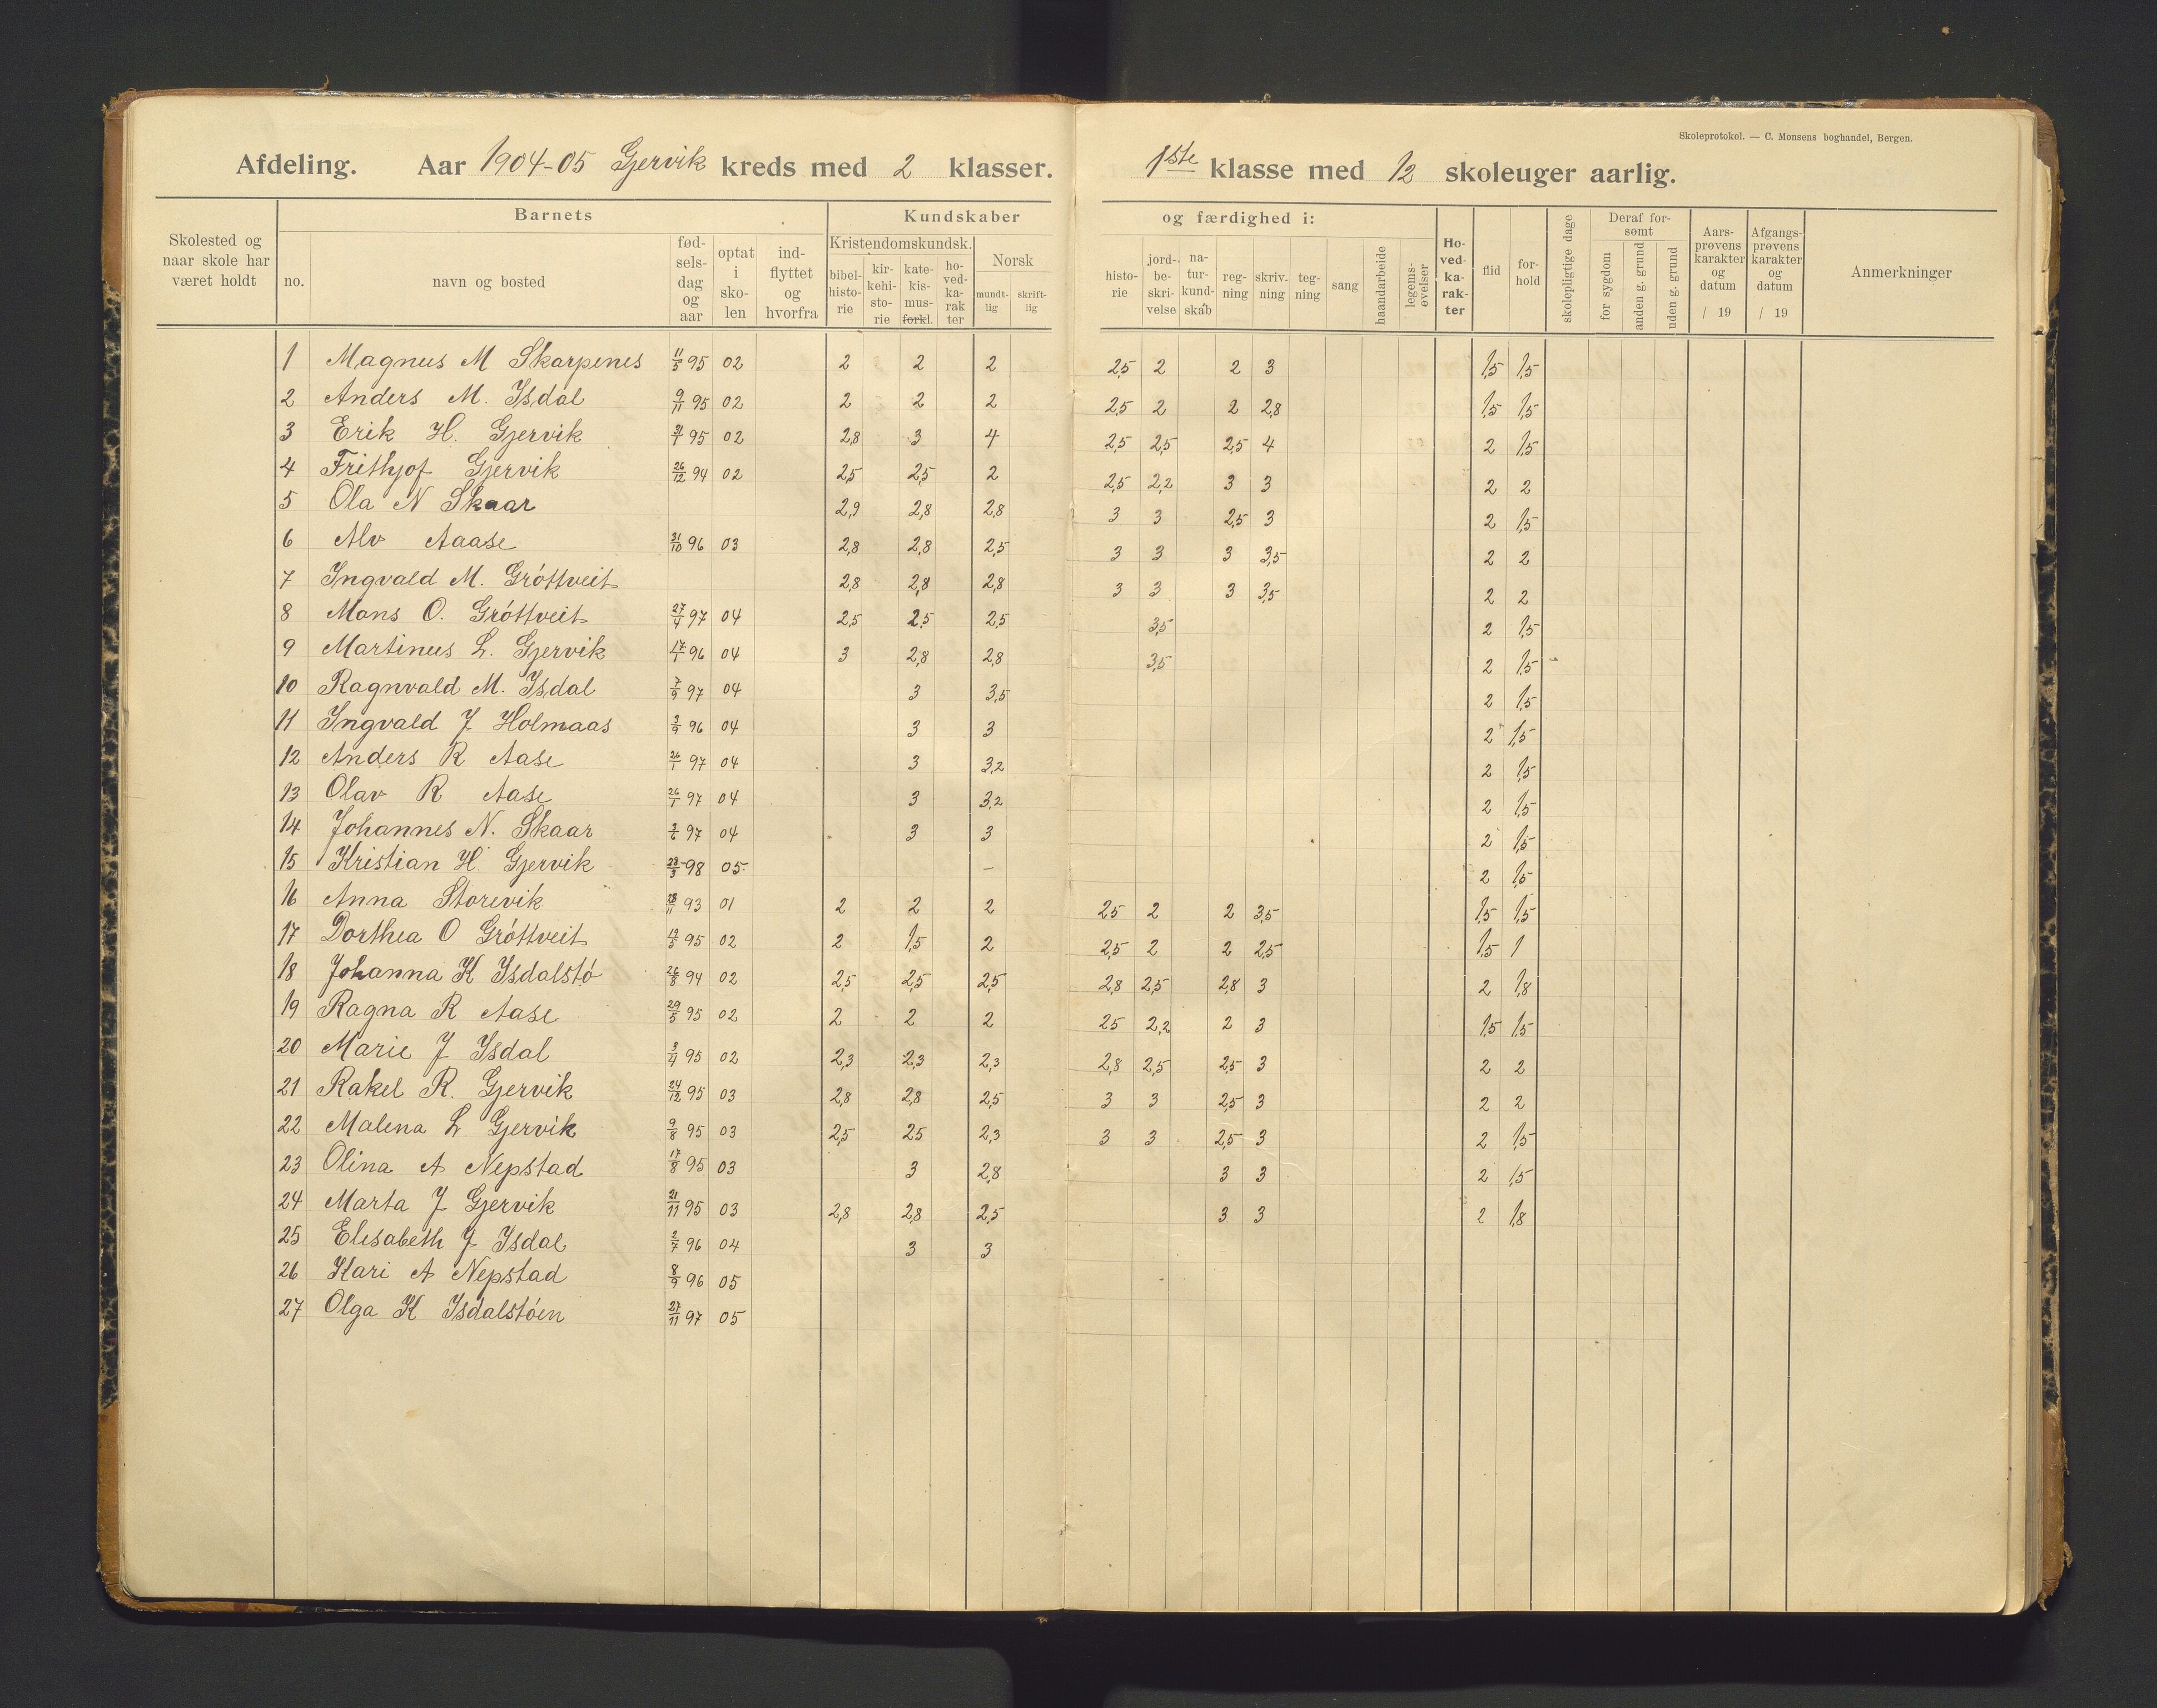 Skoleprotokol. — C. Monsens boghandel, Bergen.
Afdeling. Aar 1904-05 Gjervik kreds med 2 klasser. 1ste klasse med 12 skoleuger aarlig.
Skolested og naar skole har været holdt
Barnets
no. navn og bosted fødselsdag og aar optat i skolen indflyttet og hvorfra
Kundskaber og færdighed i:
Kristendomskundsk. bibelhistorie kirkehistorie katekismus- forkl. hovedkarakter
Norsk mundtlig skriftlig
historie jordbeskrivelse naturkundskab regning skrivning tegning sang haandarbeide legemsøvelser
Hovedkarakter flid forhold skolepligtige dage
Deraf forsømt for sygdom anden g. grund uden g. grund
Aarsprøvens karakter og datum / 19
Afgangsprøvens karakter og datum / 19
Anmerkninger
1 Magnus M Skarpenes 11/5 95 02 2 2 2 2,5 2 2 3 1,5 1,5
2 Anders M. Isdal 9/11 95 02 2 2 2 2,5 2 2 2,8 1,5 1,5
3 Erik H. Gjervik 95 02 2,8 3 4 2,5 2,5 2,5 4 2 1,5
4 Frithjof Gjervik 26/12 94 02 2,5 2,5 2 2,5 2,2 3 3 2 2
5 Ola N Skaar 2,9 2,8 2,8 3 3 2,5 3 2 1,5
6 Alv Aaase 31/10 96 03 2,8 2,8 2,5 3 3 3 3,5 2 2
7 Ingvald M. Gróttveit 2,8 2,8 2,8 3 3 3 3,5 2 2
8 Mons O. Gróttveit 27/4 97 04 2,5 2,5 2,5 3,5 2 1,5
9 Martinus L. Gjervik 17/1 96 04 3 2,8 2,8 3,5 2 1,5
10 Ragnvald M. Isdal 7/9 97 04 3 3,5 2 1,5
11 Ingvald J Holmaas 3/9 96 04 3 3 2 1,5
12 Anders R Aase 26/1 97 04 3 3,2 2 1,5
13 Olav R Aase 26/1 97 04 3 3,2 2 1,5
14 Johannes N. Skaar 3/6 97 04 3 3 2 1,5
15 Kristian H. Gjervik 23/3 98 05 — 2 1,5
16 Anna Storevik 28/11 93 01 2 2 2 2,5 2 2 3,5 1,5 1,5
17 Dorthea O Gróttveit 19/5 95 02 2 1,5 2 2,5 2 2 2,5 1,5 1
18 Johanna K Isdalstó 26/8 94 02 2,5 2,5 2,5 2,8 2,5 2,8 3 2 1,8
19 Ragna R Aase 29/5 95 02 2 2 2 2,5 2,2 2 3 1,5 1,5
20 Marie J Isdal 3/4 95 02 2,3 2,3 2,3 2,8 2,5 2,5 3 2 2
21 Rakel R. Gjervik 24/12 95 03 2,8 2,8 2,5 3 3 2,5 3 2 2
22 Malena L Gjervik 9/8 95 03 2,5 2,5 2,3 3 3 2,5 3 2 1,5
23 Olina A Nepstad 17/8 95 03 3 2,8 3 3 2 1,5
24 Marta J Gjervik 21/11 95 03 2,8 2,8 2,5 3 3 2 1,8
25 Elisabeth J Isdal 2/7 96 04 3 3
26 Kari A Nepstad 8/9 96 05
27 Olga K Isdalstóen 27/11 97 05